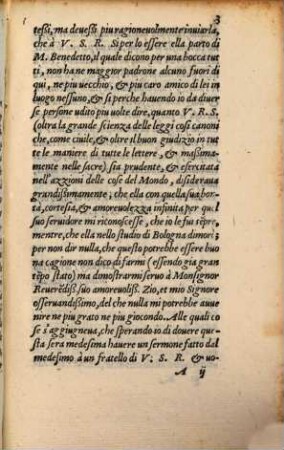 3
tessi, ma devessi piu ragionevolmente inviarla,
che à V. S. R. Si per lo essere ella parto di
M. Benedetto, il quale dicono per una bocca tut
ti, non ha ne maggior padrone alcuno fuori di
qui, ne piu vecchio, & piu caro amico di lei in
luogo nessuno, & si perche havendo io da diuer
se persone udito piu volte dire, quanto V. R. S.
(oltra la grande scienza delle leggi cosi canoni
che, come ciuile, & oltre il buon giudizio in tut
te le maniere di tutte le lettere, & massima-
mente nelle sacre) sia prudente, & esercitata
nell'azzioni delle cose del Mondo, disideraua
grandissimamente; che ella con quella sua bon
tà, cortesia, & amoreuolezza infinita per quel
suo seruidore mi riconoscesse, che io le fui sēpre,
mentre, che ella nello studio di Bologna dimorò;
per non dir nulla, che questo potrebbe essere buo
na cagione non dico di farmi (essendo gia gran
tēpo stato) ma dimostrarmi seruo à Monsignor
Reuerēdiss. suo amoreuoliss. Zio, et mio Signore
osseruandissimo, del che nulla mi potrebbe auue
nire ne piu grato ne piu giocondo. Alle quali co
se s'aggiugneua, che sperando io di douere que
sta sera medesima hauere un sermone fatto dal
medesimo à un fratello di V. S. R. & uo-
A ij